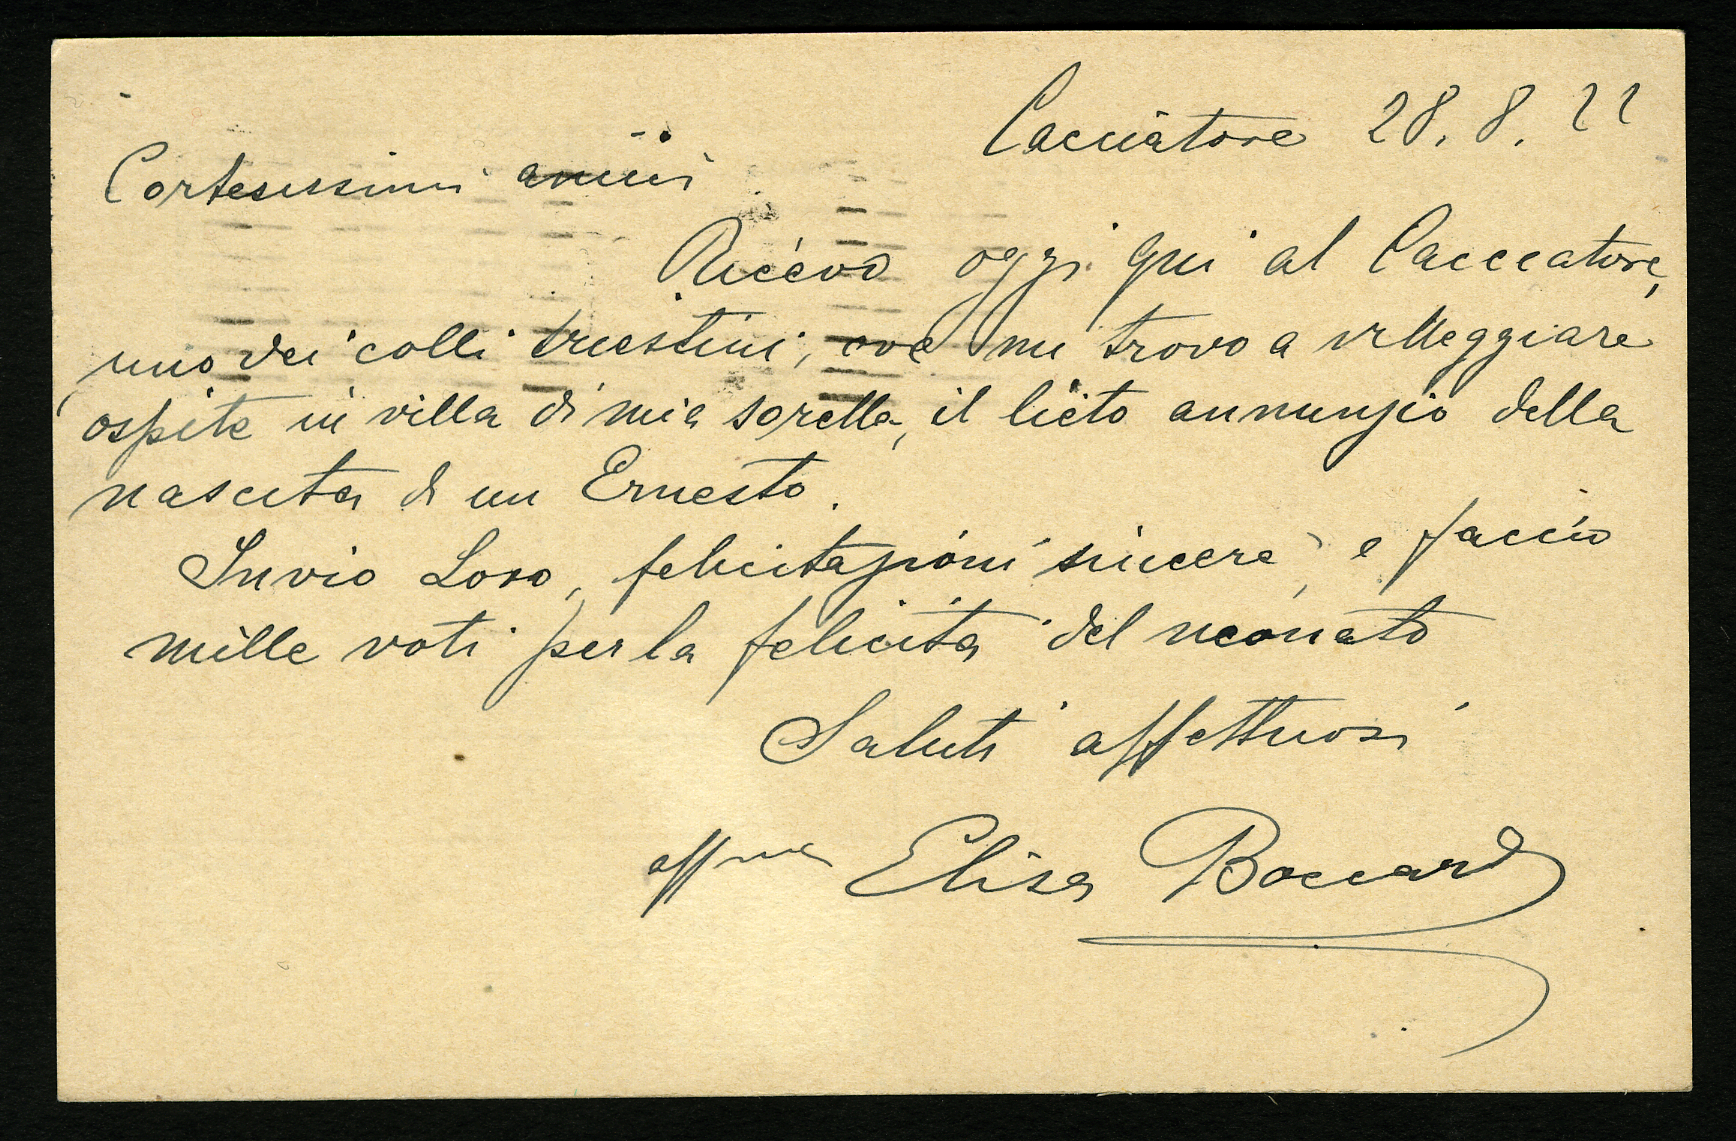 Cacciatore 28.8.22
Cortesissimi amici
Ricevo oggi qui al Cacciatore,
uno dei colli triestini, ove mi trovo a villeggiare
ospite in villa di mia sorella, il lieto annunzio della
nascita di un Ernesto.
Invio Loro, felicitazioni sincere, e faccio
mille voti per la felicità del neonato
Saluti affettuosi
affma Elisa Boccardi